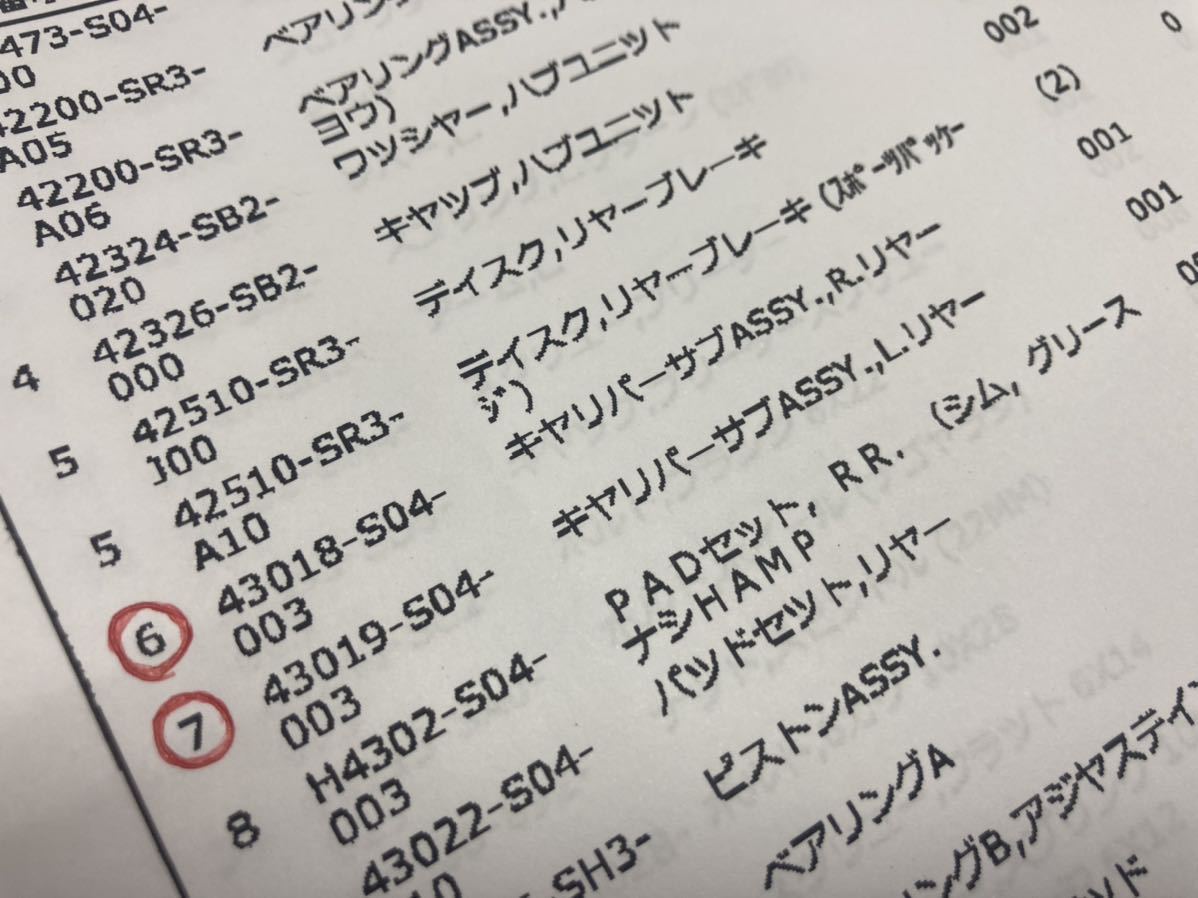 473-S04-
00
ベアリング
42200-SR3-
A05
ベアリングASSY.,
ヨウ)
42200-SR3-
A06
ワツシヤー,ハブユニツト
002
0
42324-SB2-
020
キヤツプ,ハブユニツト
(2)
4
42326-SB2-
000
デイスク,リヤーブレーキ
001
5
42510-SR3-
J00
デイスク,リヤーブレーキ (スポーツパッケー
ジ)
001
5
42510-SR3-
A10
キヤリパーサブASSY.,R.リヤー
6
43018-S04-
003
キヤリパーサブASSY.,L.リヤー
7
43019-S04-
003
PADセット, RR. (シム, グリース
ナシHAMP
H4302-S04-
003
パツドセツト,リヤー
8
43022-S04-
ピストンASSY.
-SH3-
ベアリングA
ングB,アジヤステイン